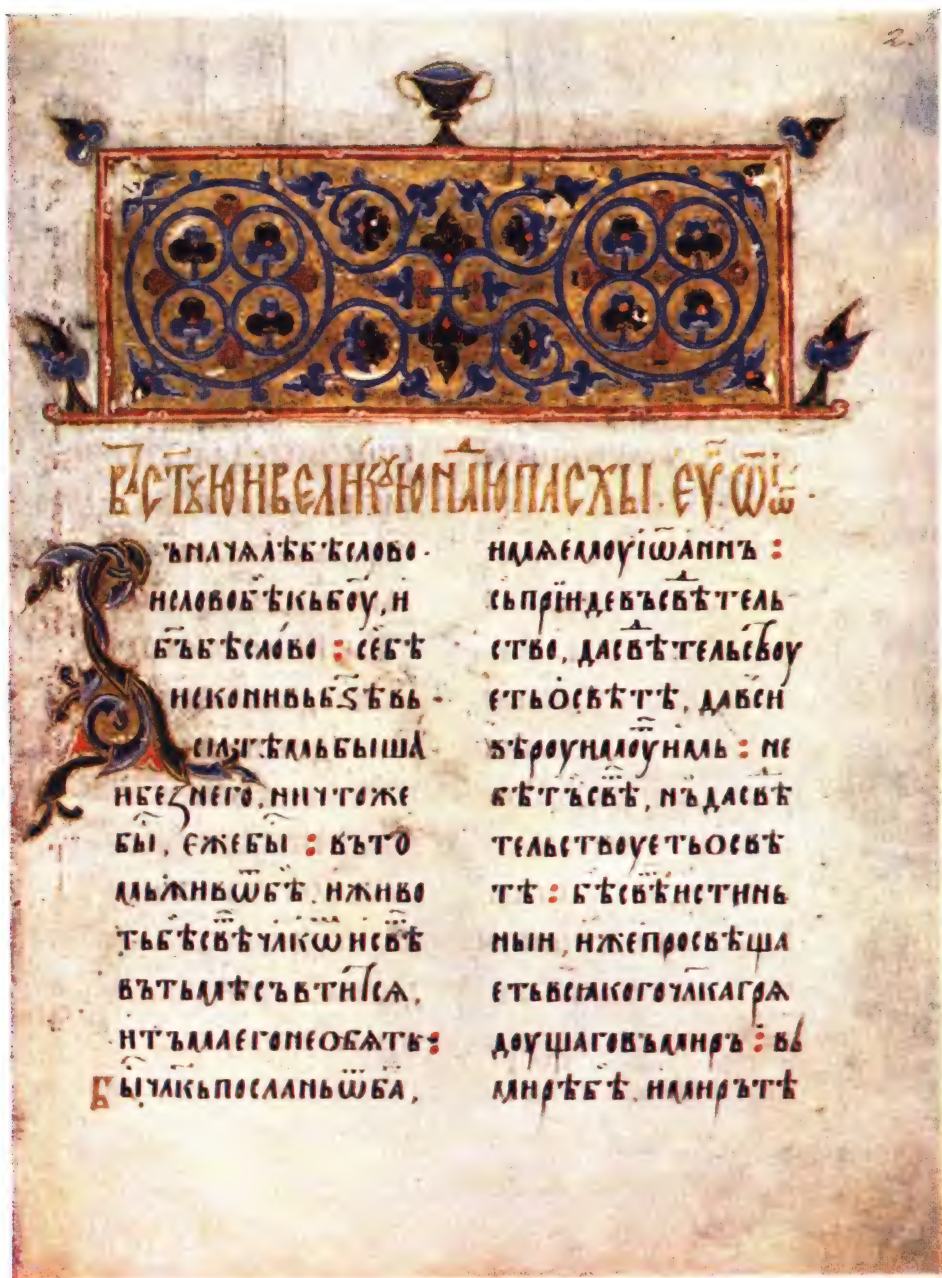 2.
В̾ СТ҃ꙊЮ И ВЕЛИКꙊЮ НⷣЛЮ ПАСХЫ. ЕѴ҃ Ѿ ІѠ҃.
Въ начѧлѣ бѣ слово.
и слово бѣ къ бо҃у, и
бъ҃ бѣ слово : се бѣ
искони въ б҃ѕѣ вь
сꙗ тѣмь бышѧ
и беꙁ него, ничтоже
бы, еже бы : въ то
мь живѡ҃ бѣ. и живо
ть бѣ свѣ чл҃кѡ и свѣ
вь тьмѣ съвтитсѧ,
и тъма его не обѧтъ :
Бы чл҃кь посланъ ѿ б҃а,
имѧ емоу іѡаннъ :
сь прїиде въ свѣⷣтель
ство, да свѣⷣтельствоу
еть о свѣтѣ, да вси
вѣроу имоуⷮ имь : не
бѣ тъ свѣⷮ, нъ да свѣⷣ
тельствоуеть о свѣ
тѣ : бѣ свѣⷮ истинь
ныи, иже просвѣща
еть всꙗкого чл҃ка грѧ
доущаго въ миръ : въ
мирѣ бѣ. и миръ тѣ